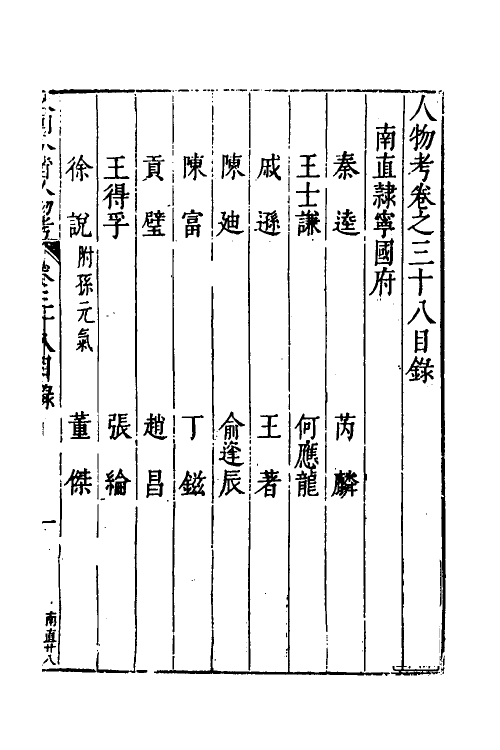 人物考卷之三十八目錄
南直隸寧國府
秦逵 芮麟
王士謙 何應龍
戚遜 王著
陳迪 俞逢辰
陳富 丁鎡
貢璧 趙昌
王得孚 張綸
徐說 附孫元氣 董傑
人物考 卷三十八目錄 一 南直廿八